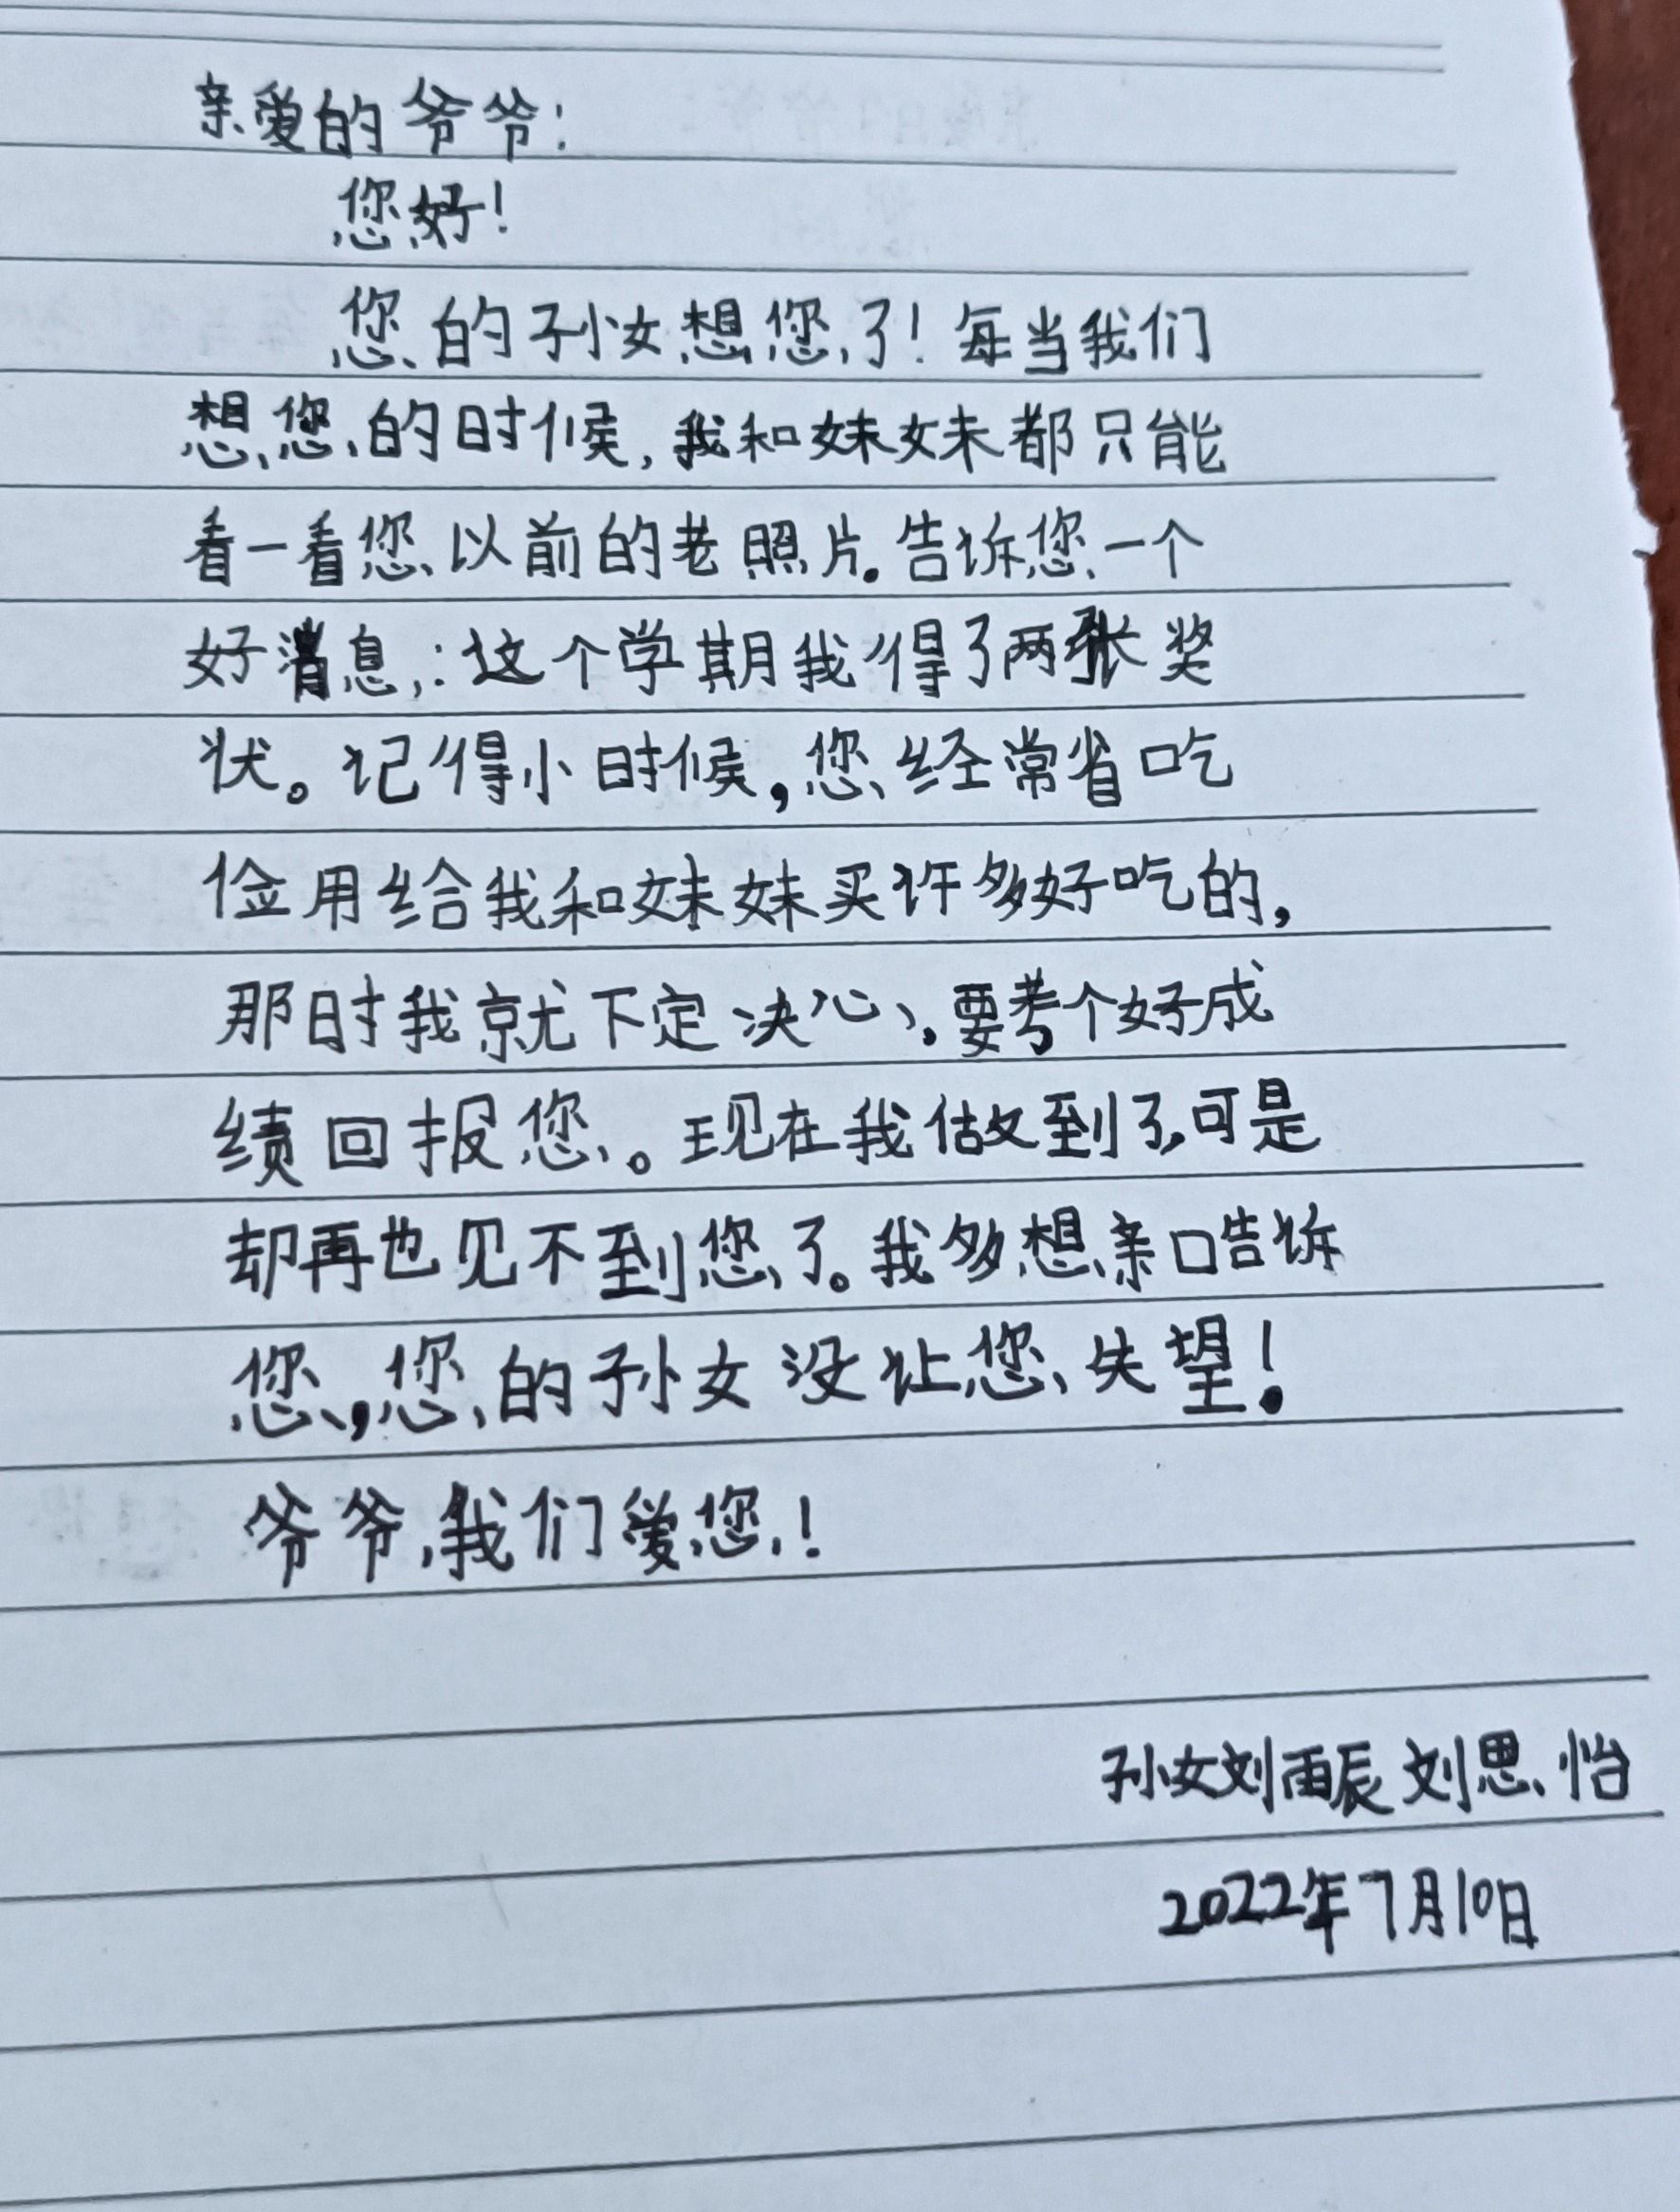 亲爱的爷爷:
您好!
您的孙女想您了!每当我们
想您的时候,我和妹妹都只能
看一看您以前的老照片。告诉您一个
好消息:这个学期我得了两张奖
状。记得小时候,您经常省吃
俭用给我和妹妹买许多好吃的,
那时我就下定决心,要考个好成
绩回报您。现在我做到了,可是
却再也见不到您了。我多想亲口告诉
您,您的孙女没让您失望!
爷爷,我们爱您!
孙女刘雨辰 刘思怡
2022年7月10日